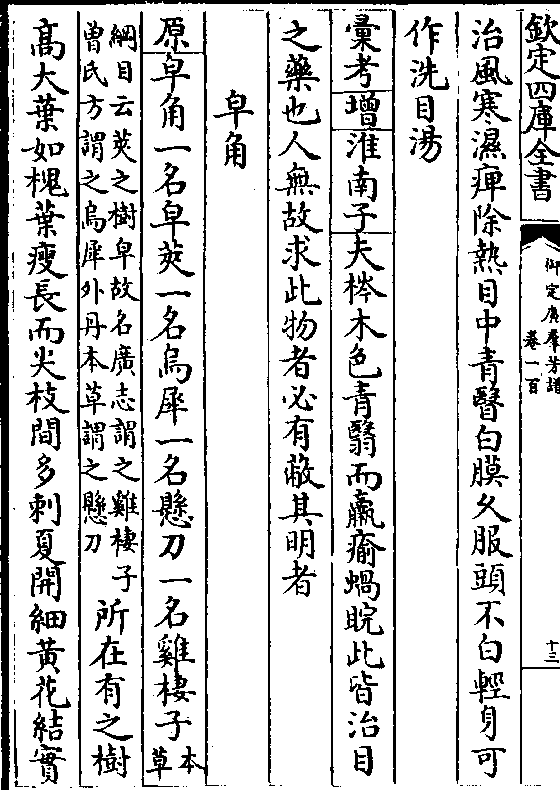 欽定四庫全書
御定廣羣芳譜
卷一百
十三
治風寒濕痺除熱目中青翳白膜久服頭不白輕身可
作洗目湯
彚考增淮南子夫梣木色青翳而蠃瘉蝸睆此皆治目
之藥也人無故求此物者必有蔽其明者
皁角
原皁角一名皁莢一名烏犀一名懸刀一名雞棲子本草
綱目云莢之樹皁故名廣志謂之雞棲子
曾氏方謂之烏犀外丹本草謂之懸刀
所在有之樹
高大葉如槐葉瘦長而尖枝間多刺夏開細黃花結實